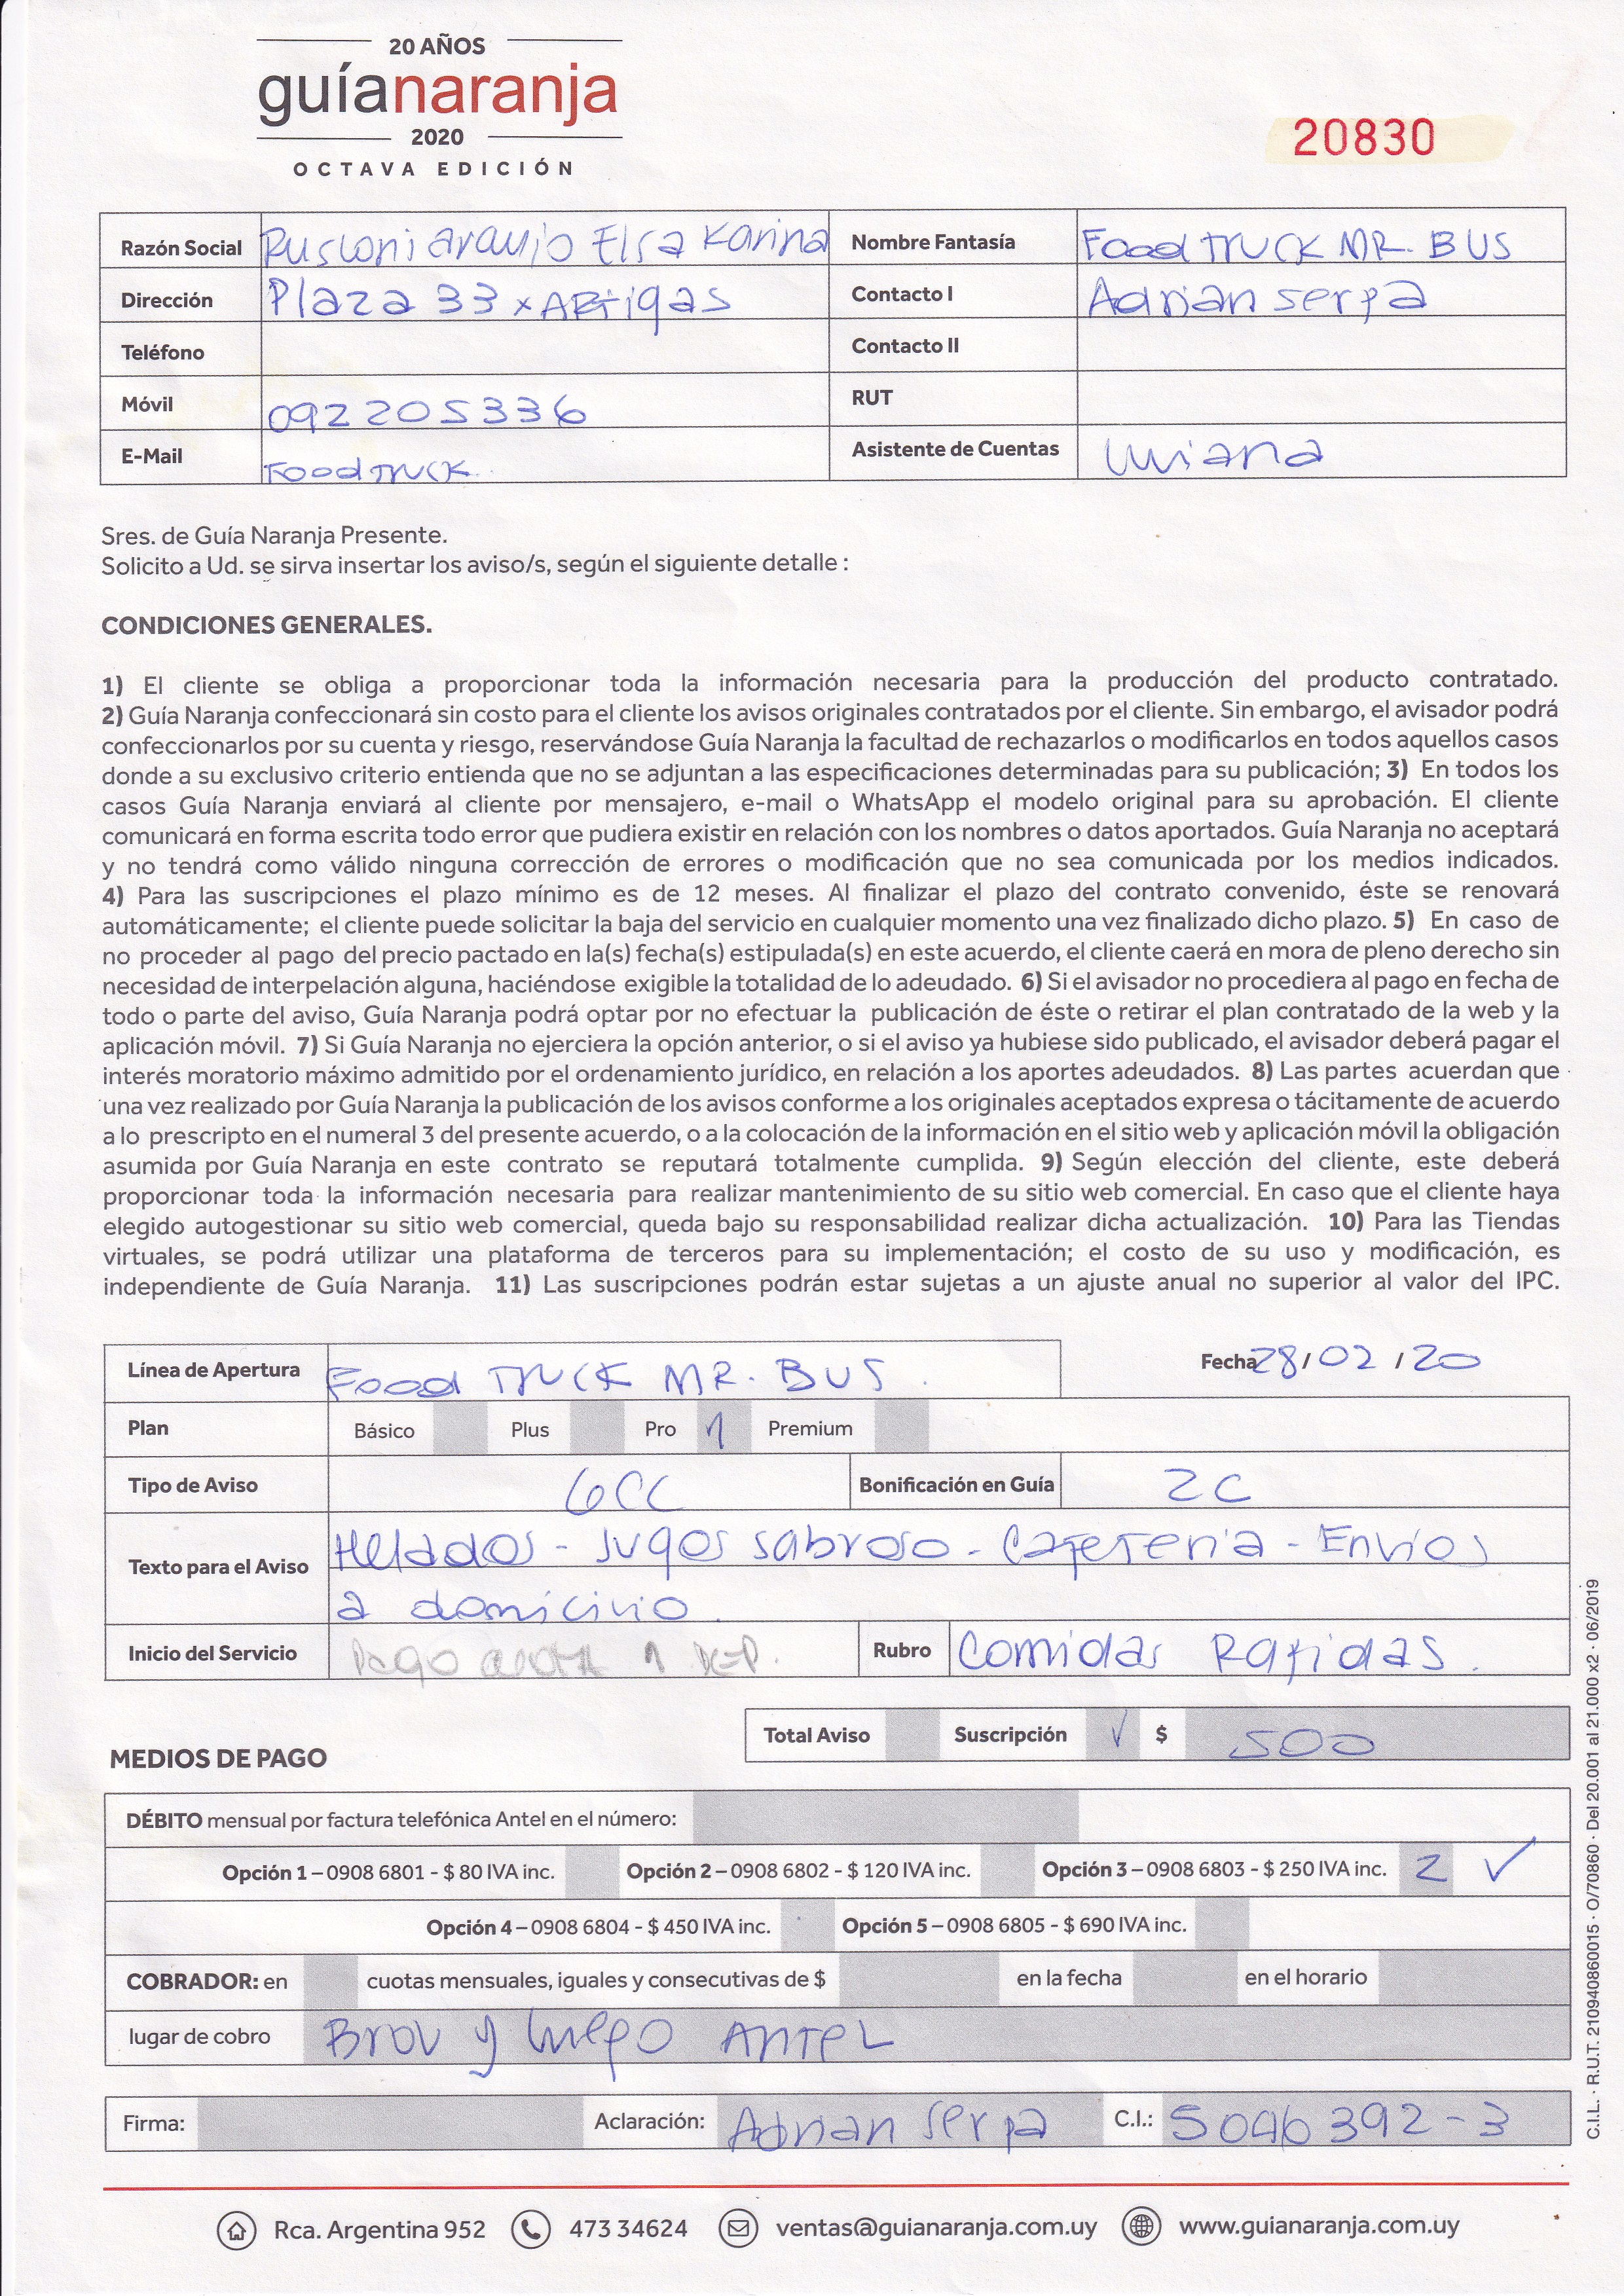 20 AÑOS
guíanaranja
2020
OCTAVA EDICIÓN
20830
Razón Social Rusconi araujo Elsa Karina Nombre Fantasía Food TRUCK MR. BUS
Dirección Plaza 33 x ARtigas Contacto I Adrian serpa
Teléfono Contacto II
Móvil 092205336 RUT
E-Mail Food TRUCK. Asistente de Cuentas
Sres. de Guía Naranja Presente.
Solicito a Ud. se sirva insertar los aviso/s, según el siguiente detalle :
CONDICIONES GENERALES.
1) El cliente se obliga a proporcionar toda la información necesaria para la producción del producto contratado.
2) Guía Naranja confeccionará sin costo para el cliente los avisos originales contratados por el cliente. Sin embargo, el avisador podrá
confeccionarlos por su cuenta y riesgo, reservándose Guía Naranja la facultad de rechazarlos o modificarlos en todos aquellos casos
donde a su exclusivo criterio entienda que no se adjuntan a las especificaciones determinadas para su publicación; 3) En todos los
casos Guía Naranja enviará al cliente por mensajero, e-mail o WhatsApp el modelo original para su aprobación. El cliente
comunicará en forma escrita todo error que pudiera existir en relación con los nombres o datos aportados. Guía Naranja no aceptará
y no tendrá como válido ninguna corrección de errores o modificación que no sea comunicada por los medios indicados.
4) Para las suscripciones el plazo mínimo es de 12 meses. Al finalizar el plazo del contrato convenido, éste se renovará
automáticamente; el cliente puede solicitar la baja del servicio en cualquier momento una vez finalizado dicho plazo. 5) En caso de
no proceder al pago del precio pactado en la(s) fecha(s) estipulada(s) en este acuerdo, el cliente caerá en mora de pleno derecho sin
necesidad de interpelación alguna, haciéndose exigible la totalidad de lo adeudado. 6) Si el avisador no procediera al pago en fecha de
todo o parte del aviso, Guía Naranja podrá optar por no efectuar la publicación de éste o retirar el plan contratado de la web y la
aplicación móvil. 7) Si Guía Naranja no ejerciera la opción anterior, o si el aviso ya hubiese sido publicado, el avisador deberá pagar el
interés moratorio máximo admitido por el ordenamiento jurídico, en relación a los aportes adeudados. 8) Las partes acuerdan que
una vez realizado por Guía Naranja la publicación de los avisos conforme a los originales aceptados expresa o tácitamente de acuerdo
a lo prescripto en el numeral 3 del presente acuerdo, o a la colocación de la información en el sitio web y aplicación móvil la obligación
asumida por Guía Naranja en este contrato se reputará totalmente cumplida. 9) Según elección del cliente, este deberá
proporcionar toda la información necesaria para realizar mantenimiento de su sitio web comercial. En caso que el cliente haya
elegido autogestionar su sitio web comercial, queda bajo su responsabilidad realizar dicha actualización. 10) Para las Tiendas
virtuales, se podrá utilizar una plataforma de terceros para su implementación; el costo de su uso y modificación, es
independiente de Guía Naranja. 11) Las suscripciones podrán estar sujetas a un ajuste anual no superior al valor del IPC.
Línea de Apertura Food TRUCK MR. BUS. Fecha 28/02/20
Plan Básico Plus Pro 1 Premium
Tipo de Aviso 6CC Bonificación en Guía 2C
Texto para el Aviso Helados - Jugos sabroso - Cafeteria - Envios
a domicilio.
Inicio del Servicio Pago Rubro Comidas Rapidas.
Total Aviso Suscripción ✓ $ 500
MEDIOS DE PAGO
DÉBITO mensual por factura telefónica Antel en el número:
Opción 1 – 0908 6801 - $ 80 IVA inc. Opción 2 – 0908 6802 - $ 120 IVA inc. Opción 3 – 0908 6803 - $ 250 IVA inc. 2 ✓
Opción 4 – 0908 6804 - $ 450 IVA inc. Opción 5 – 0908 6805 - $ 690 IVA inc.
COBRADOR: en cuotas mensuales, iguales y consecutivas de $ en la fecha en el horario
lugar de cobro Brou y luego ANTEL
Firma: Aclaración: Adrian Serpa C.I.: 5046392-3
C.I.L. · R.U.T. 210940860015 · O/70860 · Del 20.001 al 21.000 x2 · 06/2019
Rca. Argentina 952 473 34624 ventas@guianaranja.com.uy www.guianaranja.com.uy